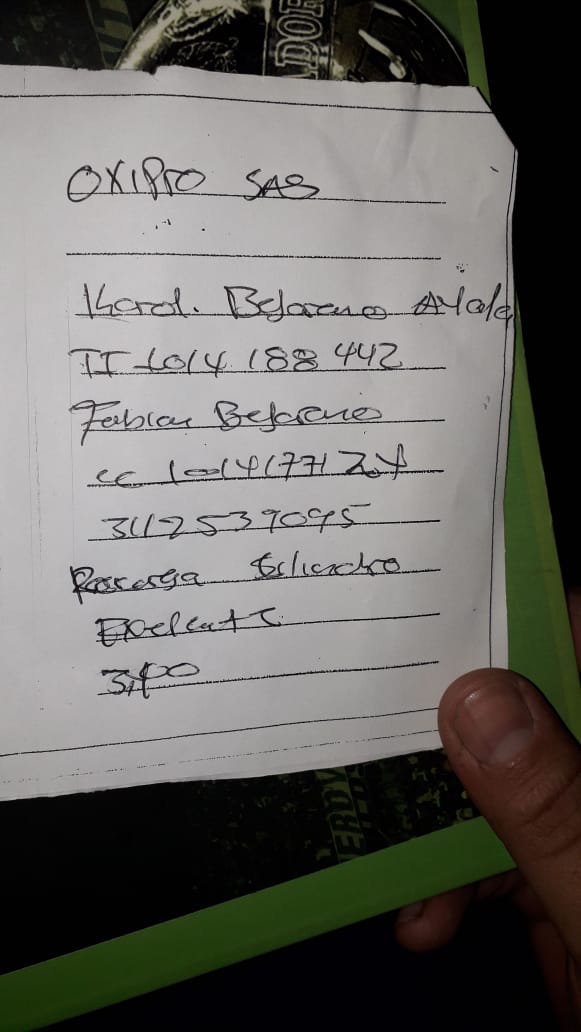 ADOR
OXIPRO SAS
Karol. Bejarano Ayala
TI 1014 188 442
Fabian Bejarano
cc 10141771
3112539095
Recarga Cilindro
ERDV